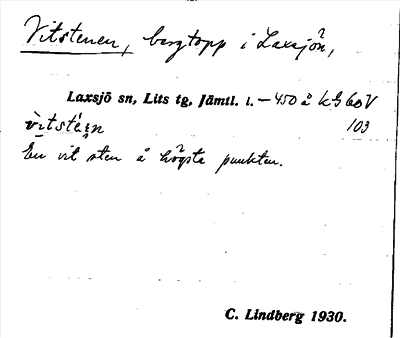 Vitstenen, bergtopp i Laxsjön,
Laxsjö sn, Lits tg, Jämtl. l. – 450 å kbl 60V
103
En vit sten å högsta punkten.
C. Lindberg 1930.